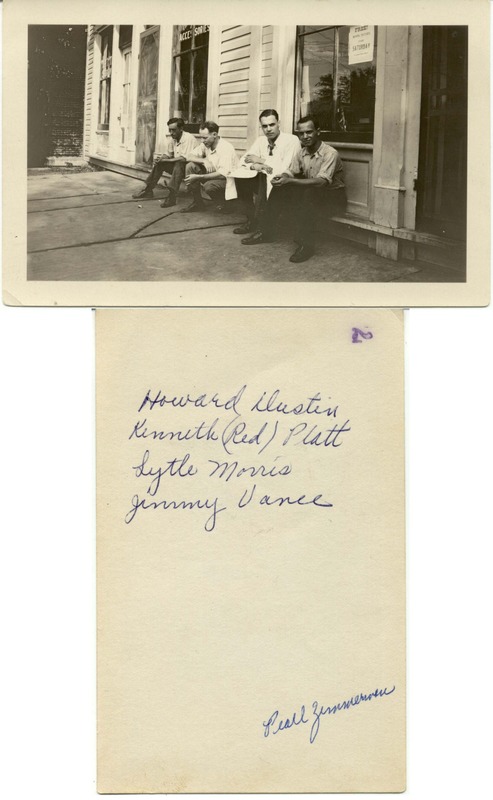 ACCESSORIES
FREE
SATURDAY
2
Howard Dustin
Kenneth (Red) Platt
Lytle Morris
Jimmy Vance
Pearl Zimmerman